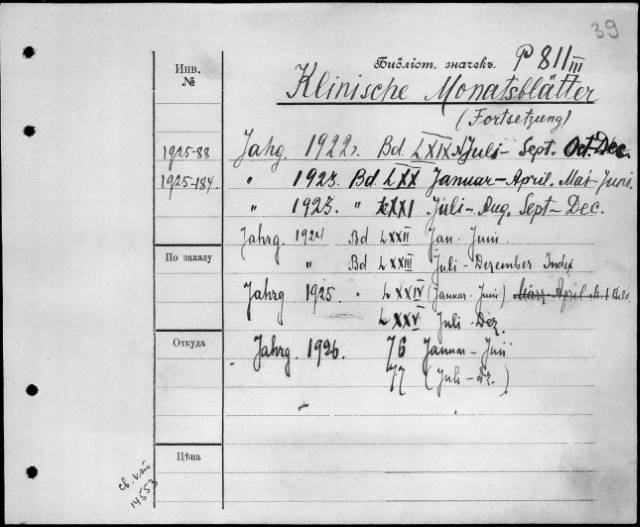 39
Инв.
№
Библіот. значекъ. P 811 III
Klinische Monatsblätter
(Fortsetzung)
1925-88 Jahg. 1922. Bd. LXIX Juli - Sept. Oct-Dec.
1925-184. " 1923. Bd. LXX Januar-April. Mai-Juni.
" 1923. " LXXI Juli-Aug. Sept-Dec.
Jahrg. 1924 Bd LXXII Jan-Juni
По заказу " Bd LXXIII Juli-Dezember Index
Jahrg 1925. " LXXIV (Januar-Juni) März-April
LXXV Juli-Dez.
Откуда Jahrg. 1926. 76 Januar-Juni
77 (Juli-Dz.)
Цѣна
14553